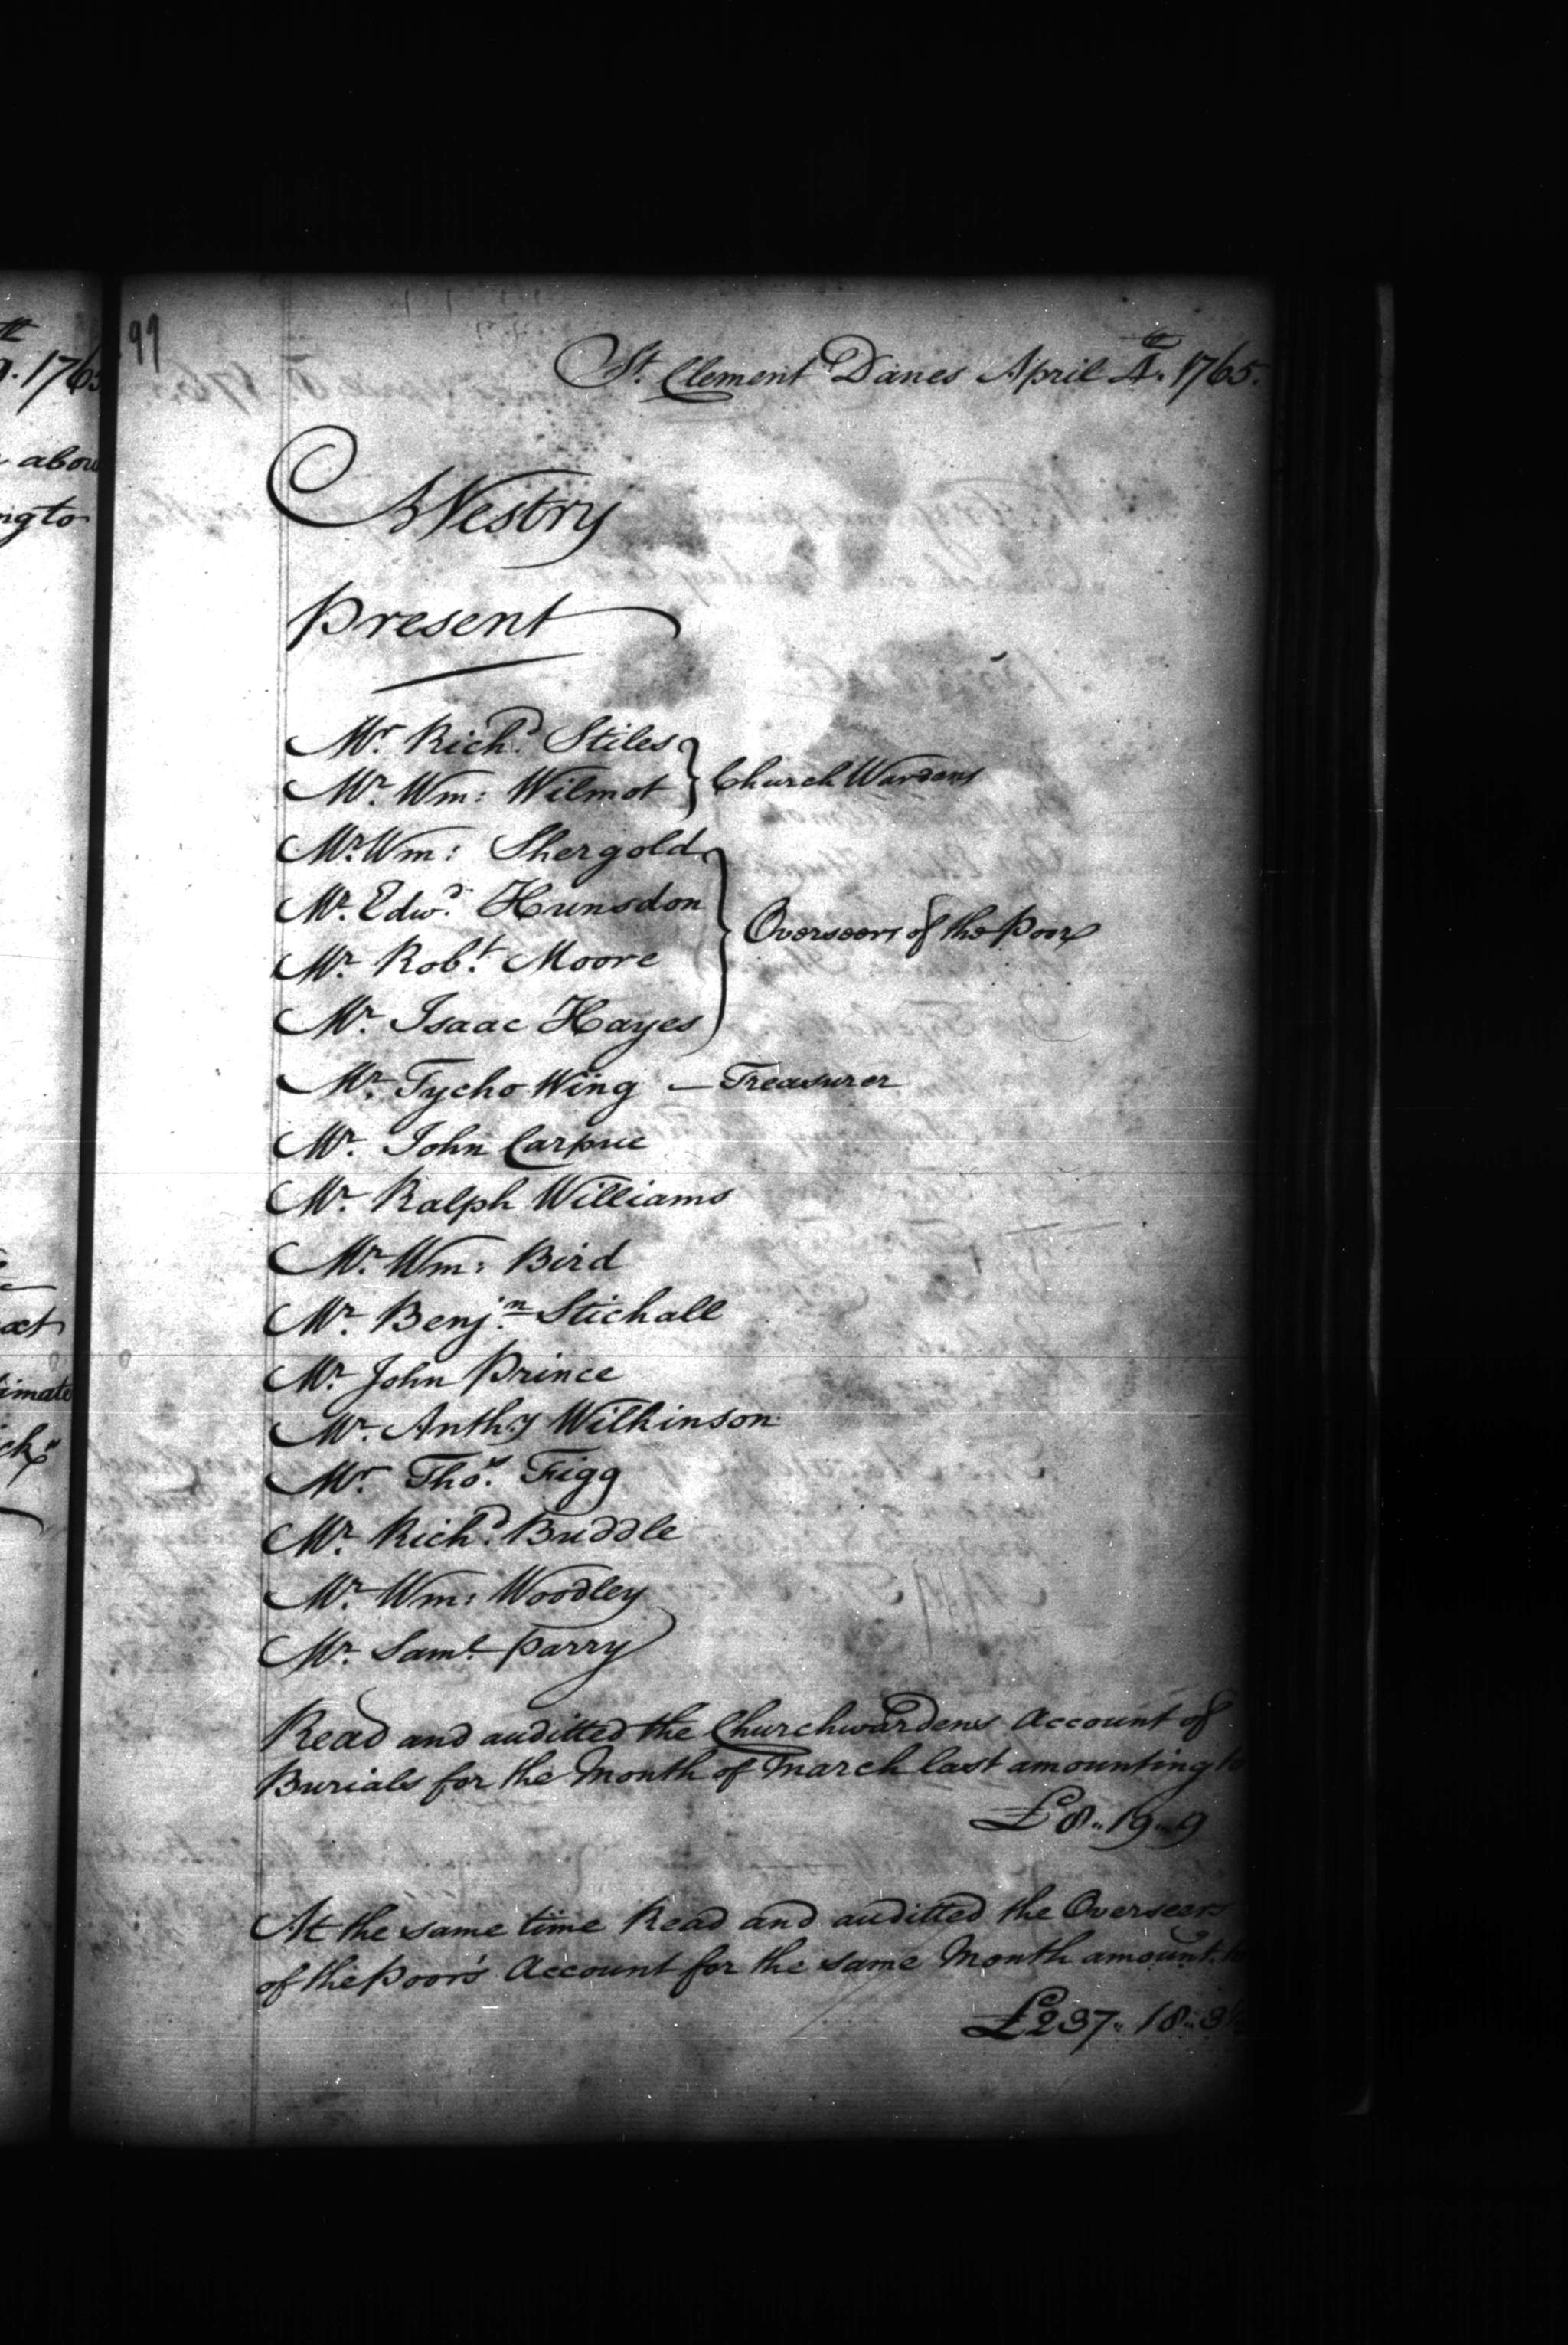 99
St. Clement Danes April 4th. 1765.
A Vestry
Present
Mr. Richd. Stiles
Mr. Wm: Wilmot } Church Wardens
Mr. Wm: Shergold
Mr. Edwd. Hunsdon
Overseers of the Poor
Mr. Robt. Moore
Mr. Isaac Hayes
Mr. Tycho Wing — Treasurer
Mr. John Carpue
Mr. Ralph Williams
Mr. Wm: Bird
Mr. Benjn. Stichall
Mr. John Prince
Mr. Anthy. Wilkinson
Mr. Thos. Figg
Mr. Richd. Buddle
Mr. Wm: Woodley
Mr. Saml. Parry
Read and auditted the Churchwardens Account of
Burials for the Month of March last amounting to
£8..19..9
At the same time Read and auditted the Overseers
of the Poor's Account for the same Month amount. to
£237..18..3½